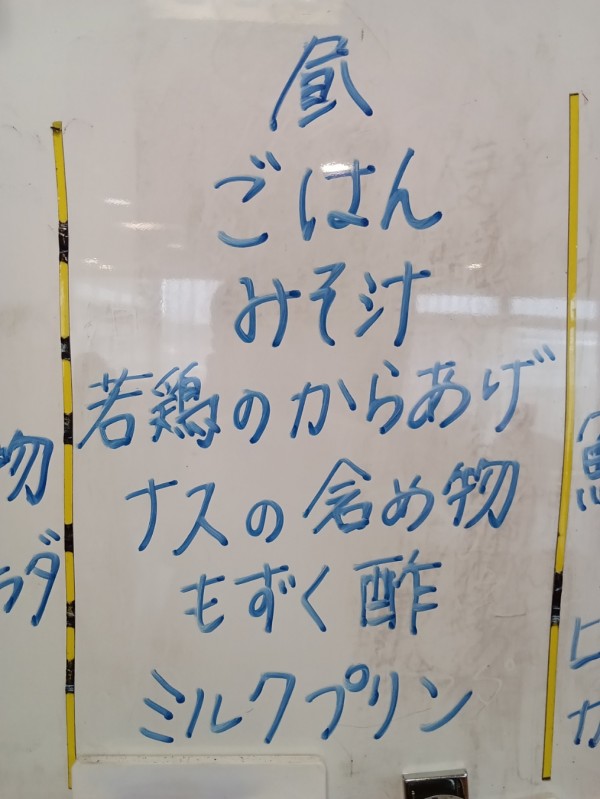 昼
ごはん
みそ汁
若鶏のからあげ
ナスの含め物
もずく酢
ミルクプリン
物
ラダ